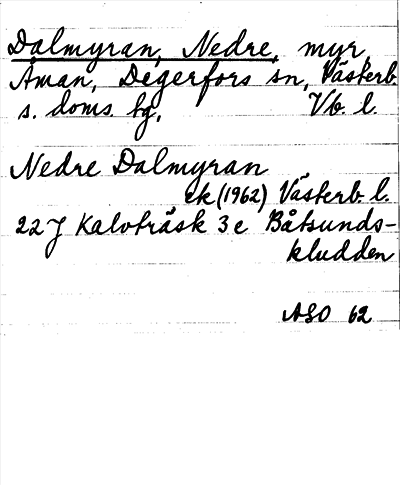 Dalmyran, Nedre, myr
Åman, Degerfors sn, Västerb.
s. doms. hg, Vb. l.
Nedre Dalmyran
ek (1962) Västerb. l.
22 J Kalvträsk 3 e Båtsunds-
kludden
ASO 62